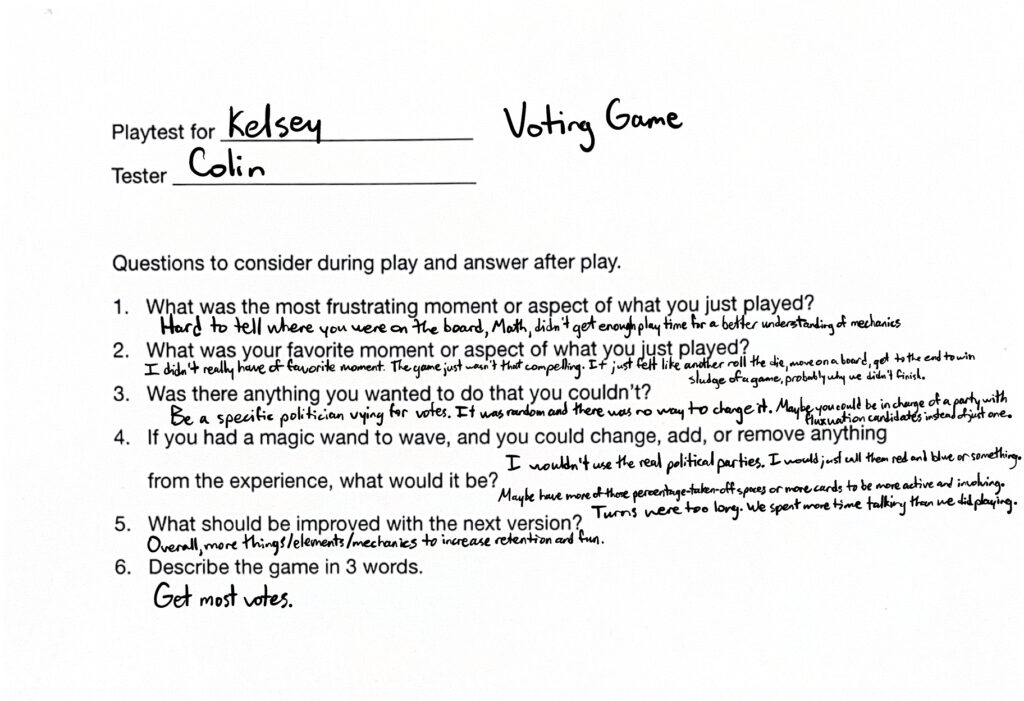 Playtest for Kelsey Voting Game
Tester Colin
Questions to consider during play and answer after play.
1. What was the most frustrating moment or aspect of what you just played?
Hard to tell where you were on the board, Math, didn't get enough play time for a better understanding of mechanics
2. What was your favorite moment or aspect of what you just played?
I didn't really have of favorite moment. The game just wasn't that compelling. It just felt like another roll the die, move on a board, get to the end to win
sludge of a game, probably why we didn't finish.
3. Was there anything you wanted to do that you couldn't?
Be a specific politician vying for votes. It was random and there was no way to change it. Maybe you could be in charge of a party with
fluxuation candidates instead of just one.
4. If you had a magic wand to wave, and you could change, add, or remove anything
from the experience, what would it be?
I wouldn't use the real political parties. I would just call them red and blue or something.
Maybe have more of those percentage-taken-off spaces or more cards to be more active and involving.
Turns were too long. We spent more time talking than we did playing.
5. What should be improved with the next version?
Overall, more things/elements/mechanics to increase retention and fun.
6. Describe the game in 3 words.
Get most votes.